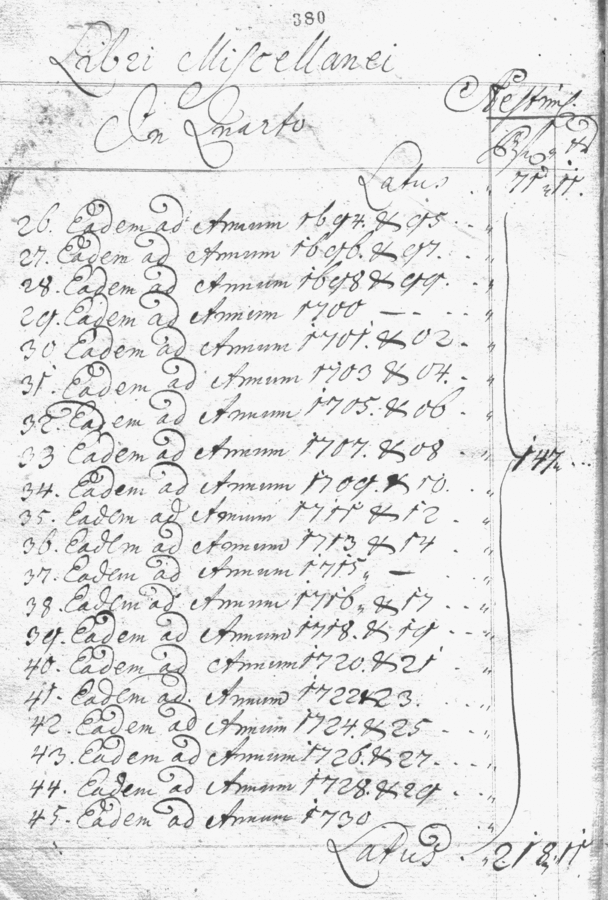 380
Libri Miscellanei
In Quarto
Æstim.
Latus . . 71 " 11.
26. Eadem ad Annum 1694. & 95 . . "
27. Eadem ad Annum 1696. & 97. . "
28. Eadem ad Annum 1698 & 99 . . "
29. Eadem ad Annum 1700 — . . . "
30 Eadem ad Annum 1701. & 02 . . "
31. Eadem ad Annum 1703 & 04. . "
32. Eadem ad Annum 1705. & 06 . "
33 Eadem ad Annum 1707. & 08 . "
147 " . . .
34. Eadem ad Annum 1709. & 10. . "
35. Eadem ad Annum 1711 & 12 . "
36. Eadem ad Annum 1713. & 14 . "
37. Eadem ad Annum 1715 " — . . "
38. Eadem ad Annum 1716 " & 17 . . "
39. Eadem ad Annum 1718. & 19 . . "
40. Eadem ad Annum 1720. & 21 . "
41. Eadem ad Annum 1722 & 23. . "
42. Eadem ad Annum 1724. & 25 . . "
43. Eadem ad Annum 1726. & 27. . "
44. Eadem ad Annum 1728. & 29 . "
45. Eadem ad Annum 1730 "
Latus . " 218 " 11